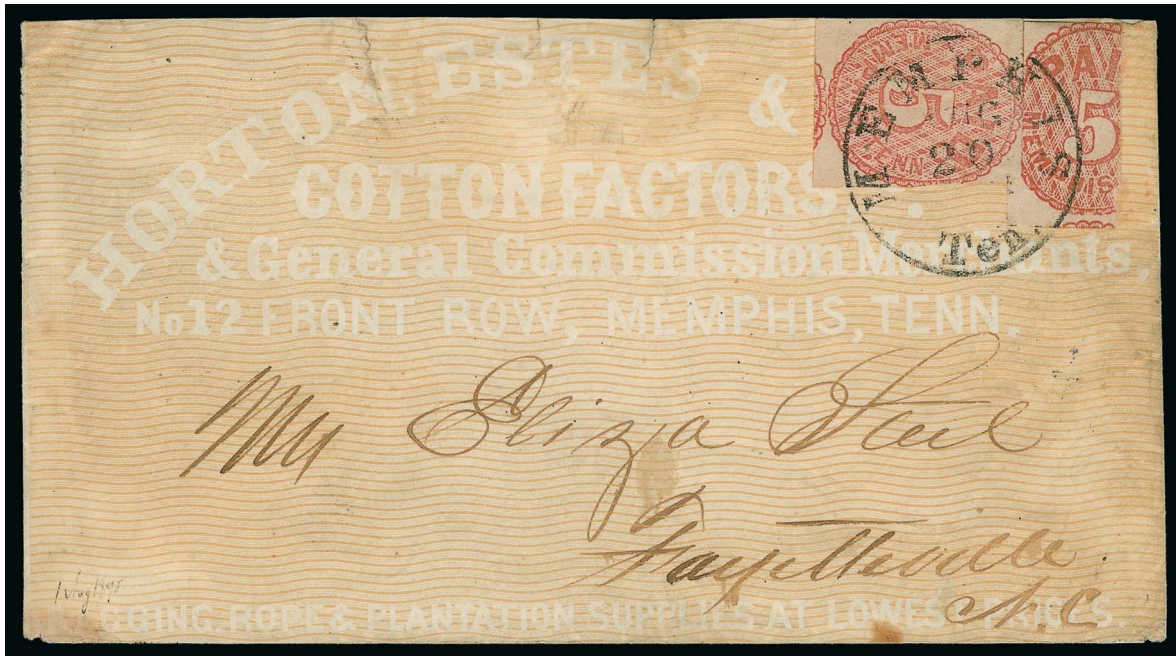 HORTON, ESTES &
COTTON FACTORS
& General Commission Merchants,
No 12 FRONT ROW, MEMPHIS, TENN.
PAI
5
MEMPHIS
5
MEMPHIS
TENN
MEMPHIS
AUG
20
Ten.
Eliza
Fayetteville
N.C.
GGING, ROPE & PLANTATION SUPPLIES AT LOWEST PRICES.